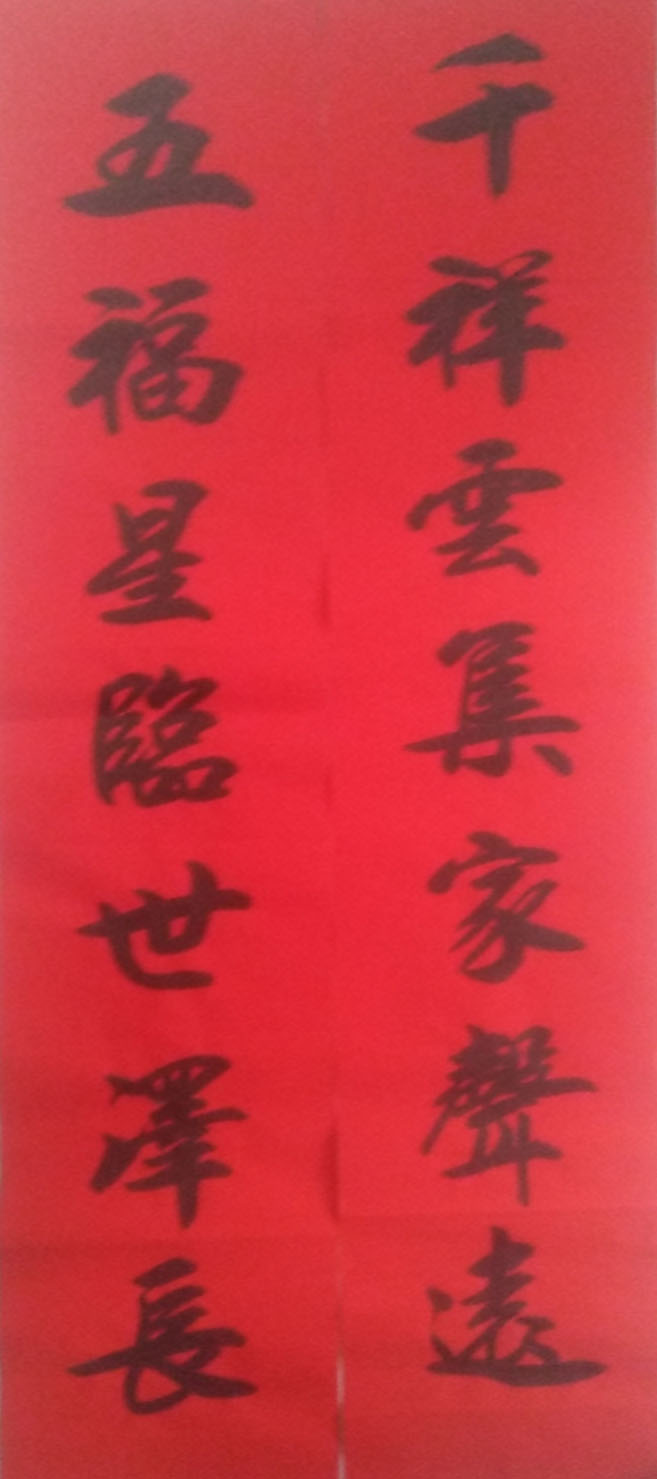 千祥雲集家聲遠
五福星臨世澤長